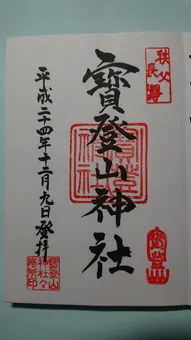 秩父
長瀞
寶登山神社
平成二十四年十二月九日登拝
寶登山
神社々
務所印